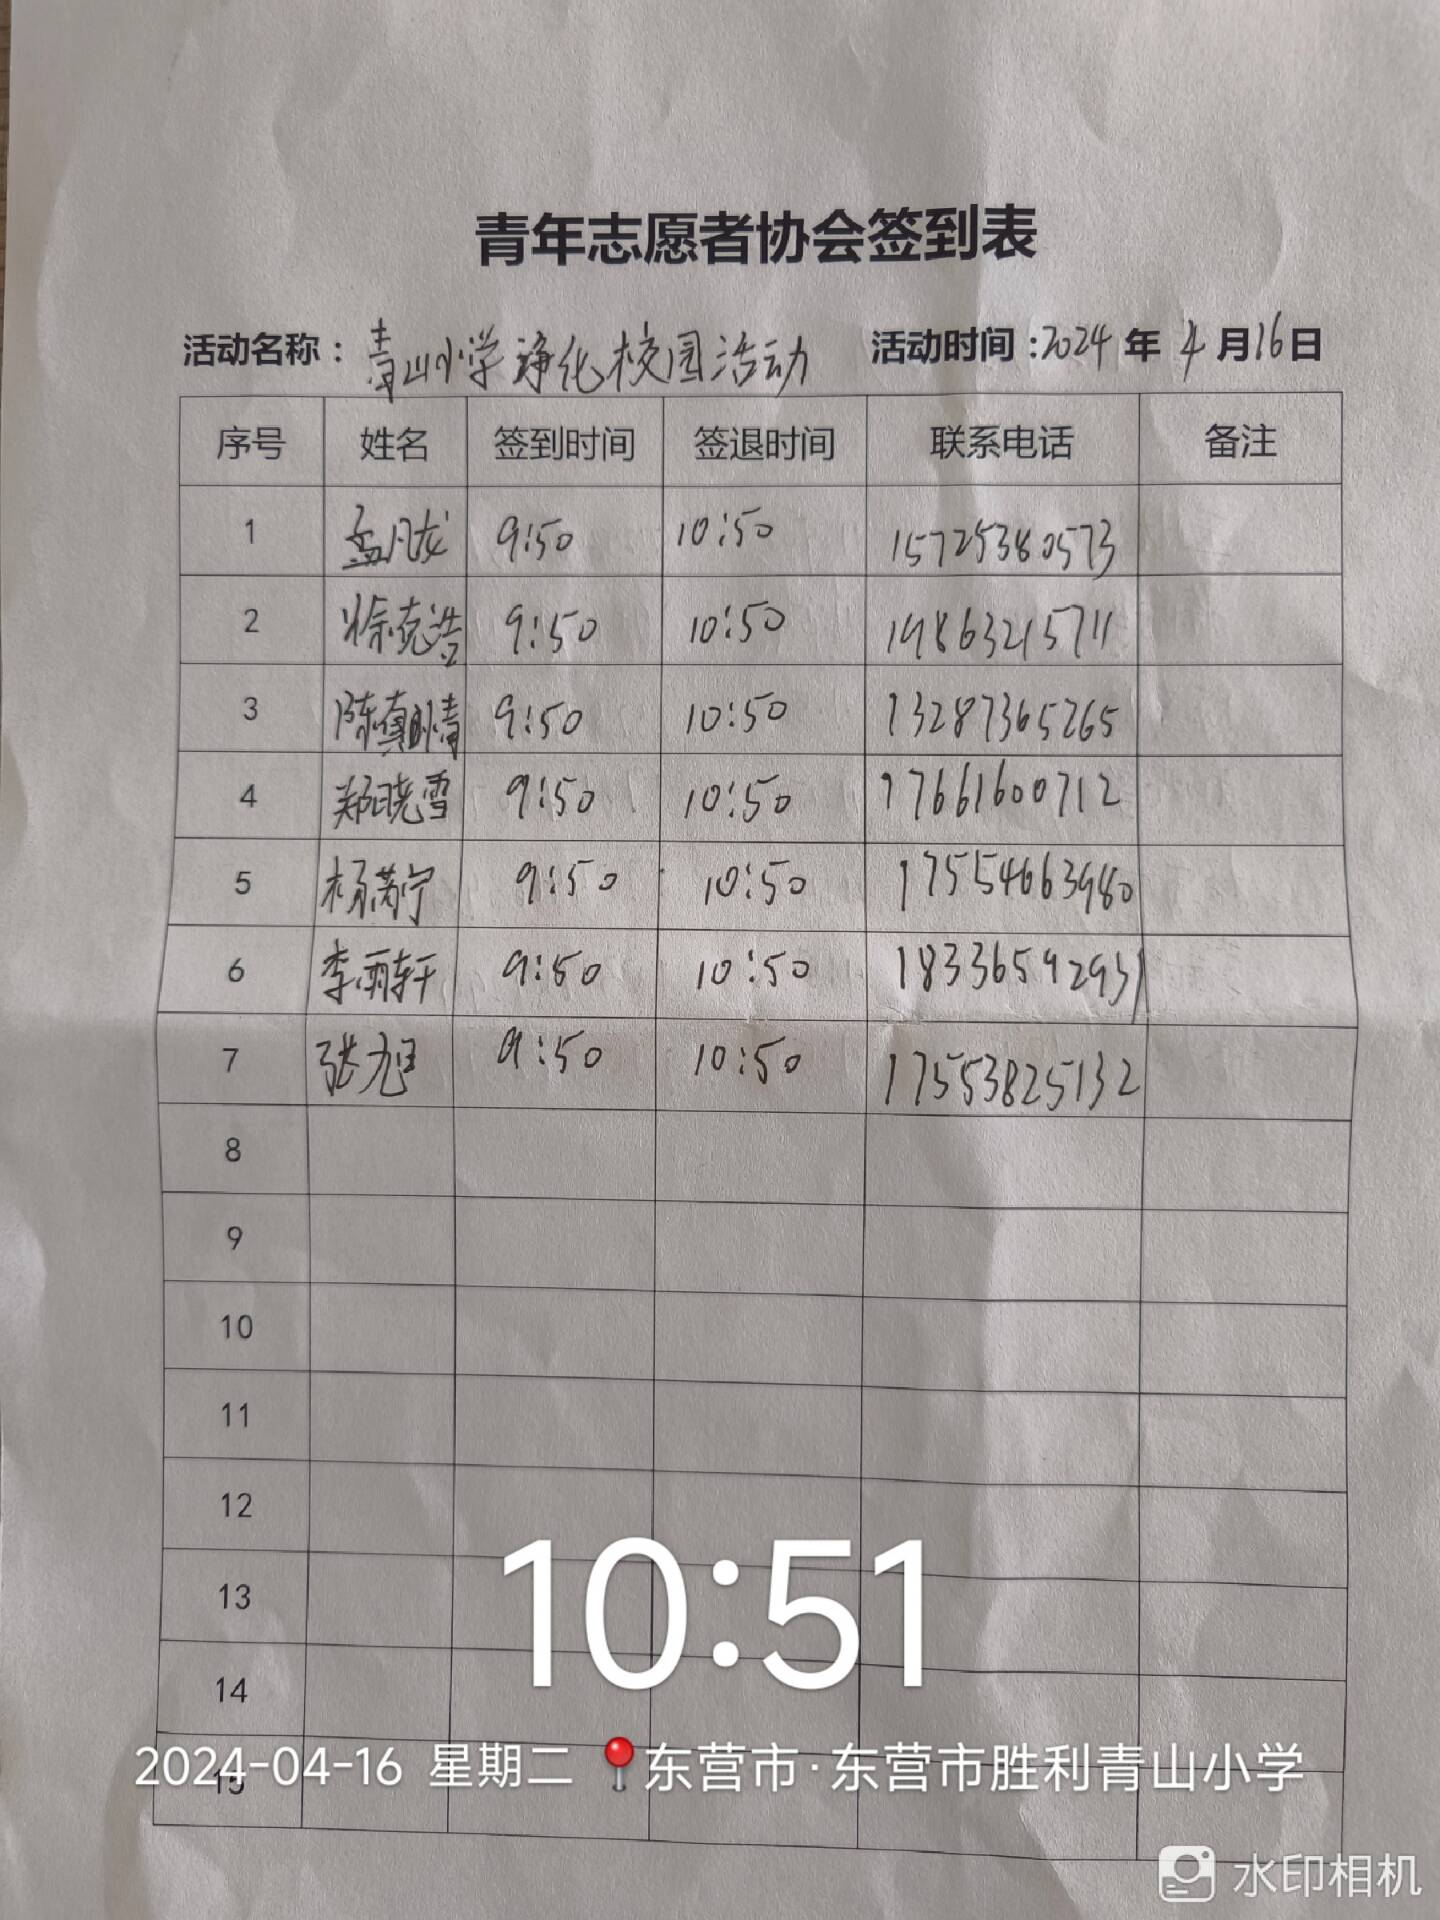 青年志愿者协会签到表
活动名称：青山小学净化校园活动 活动时间：2024年4月16日
序号 姓名 签到时间 签退时间 联系电话 备注
1 孟凡龙 9:50 10:50 15725380573
2 徐克浩 9:50 10:50 19863215711
3 陈真晴 9:50 10:50 13287365265
4 郑晓雪 9:50 10:50 17661600712
5 杨 宁 9:50 10:50 17554663980
6 李雨轩 9:50 10:50 18336592931
7 张旭 9:50 10:50 17553825132
8
9
10
11
12
13
14
15
10:51
2024-04-16 星期二 东营市·东营市胜利青山小学
水印相机